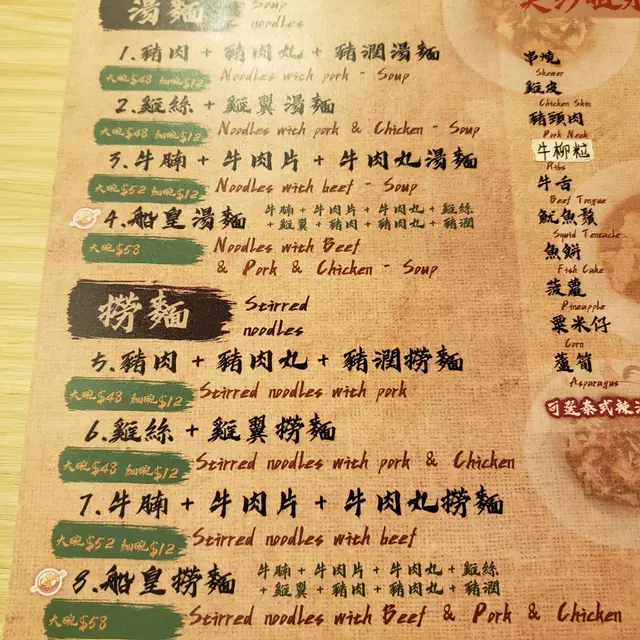 湯麵
Soup
noodles
1.豬肉 + 豬肉丸 + 豬潤湯麵
大碗$48 細碗$12
Noodles with pork - Soup
2.雞絲 + 雞翼湯麵
大碗$48 細碗$12
Noodles with pork & Chicken - Soup
3.牛腩 + 牛肉片 + 牛肉丸湯麵
大碗$52 細碗$12
Noodles with beef - Soup
4.船皇湯麵
牛腩 + 牛肉片 + 牛肉丸 + 雞絲
+ 雞翼 + 豬肉 + 豬肉丸 + 豬潤
大碗$58
Noodles with Beef
& Pork & Chicken - Soup
撈麵
Stirred
noodles
5.豬肉 + 豬肉丸 + 豬潤撈麵
大碗$48 細碗$12
Stirred noodles with pork
6.雞絲 + 雞翼撈麵
大碗$48 細碗$12
Stirred noodles with pork & Chicken
7.牛腩 + 牛肉片 + 牛肉丸撈麵
大碗$52 細碗$12
Stirred noodles with beef
8.船皇撈麵
牛腩 + 牛肉片 + 牛肉丸 + 雞絲
+ 雞翼 + 豬肉 + 豬肉丸 + 豬潤
大碗$58
Stirred noodles with Beef & Pork & Chicken
串燒
Skewer
雞皮
Chicken Skin
豬頸肉
Pork Neck
牛柳粒
Ribs
牛舌
Beef Tongue
魷魚鬚
Squid Tentacle
魚餅
Fish Cake
菠蘿
Pineapple
粟米仔
Corn
蘆筍
Asparagus
可送泰式辣